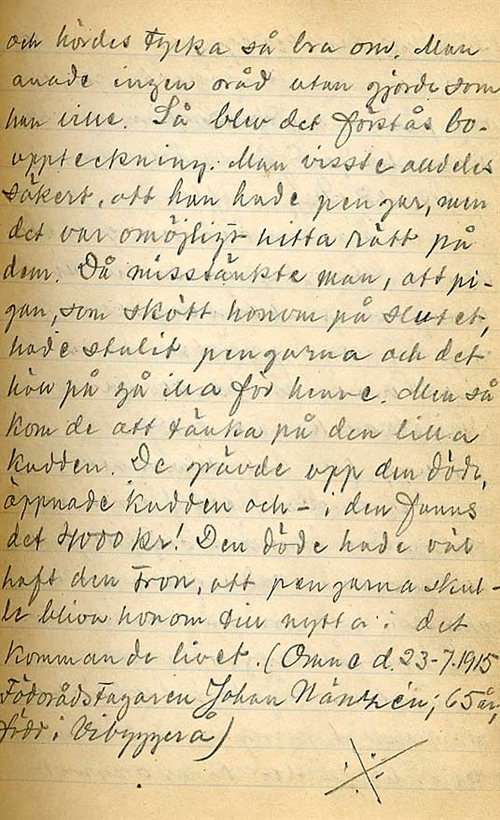 och hördes tycka så bra om. Man
anade ingen oråd utan gjorde som
han ville. Så blev det förstås bo-
uppteckning. Man visste alldeles
säkert, att han hade pengar, men
det var omöjligt hitta rätt på
dem. Då misstänkte man, att pi-
gan, som skött honom på slutet,
hade stulit pengarna och det
höll på gå illa för henne. Men så
kom de att tänka på den lilla
kudden. De grävde upp den döde,
öppnade kudden och - i den fanns
det 4000 kr! Den döde hade väl
haft den tron, att pengarna skul-
le bliva honom till nytta i det
kommande livet. (Omne d. 23-7.1915
Födorådstagaren Johan 65 år,
född i Vibyggerå)